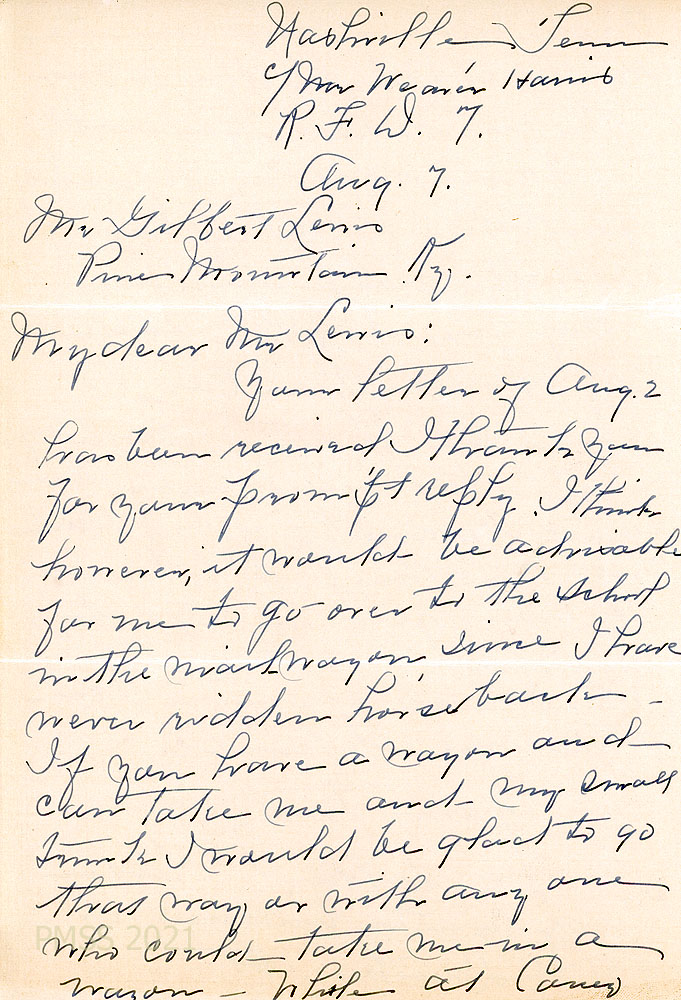 Nashville Tenn
c/o Mr Weaver Harris
R. F. D. 7.
Aug. 7.
Mr Gilbert Lewis
Pine Mountain Ky.
My dear Mr Lewis:
Your letter of Aug. 2
has been received I thank you
for your prompt reply. I think
however, it would be advisable
for me to go over to the school
in the mail wagon since I have
never ridden horseback -
If you have a wagon and
can take me and my small
trunk I would be glad to go
that way or with any one
who could take me in a
wagon - While at Caney
PMSS 2021